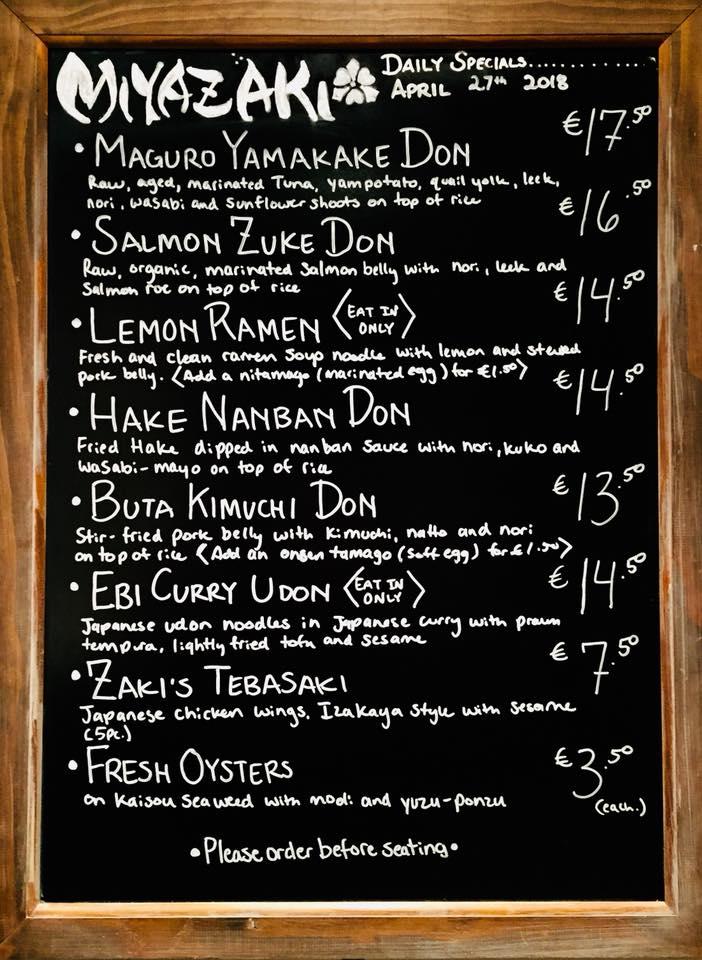 MIYAZAKI
DAILY SPECIALS..............
APRIL 27th 2018
• MAGURO YAMAKAKE DON €17.50
Raw, aged, marinated Tuna, yampotato, quail yolk, leek,
nori, wasabi and Sunflower shoots on top of rice
• SALMON ZUKE DON €16.50
Raw, organic, marinated Salmon belly with nori, leek and
Salmon roe on top of rice
• LEMON RAMEN <EAT IN ONLY> €14.50
Fresh and clean ramen Soup noodle with lemon and stewed
pork belly. <Add a nitamago (marinated egg) for €1.50>
• HAKE NANBAN DON €14.50
Fried Hake dipped in nanban Sauce with nori, kuko and
wasabi-mayo on top of rice
• BUTA KIMUCHI DON €13.50
Stir-fried pork belly with Kimuchi, natto and nori
on top of rice <Add an onsen tamago (soft egg) for €1.50>
• EBI CURRY UDON <EAT IN ONLY> €14.50
Japanese udon noodles in Japanese curry with prawn
tempura, lightly fried tofu and sesame
• ZAKI'S TEBASAKI €7.50
Japanese chicken wings, Izakaya style with sesame
(5pc.)
• FRESH OYSTERS €3.50
on Kaisou Seaweed with modi and yuzu-ponzu (each.)
• Please order before seating •